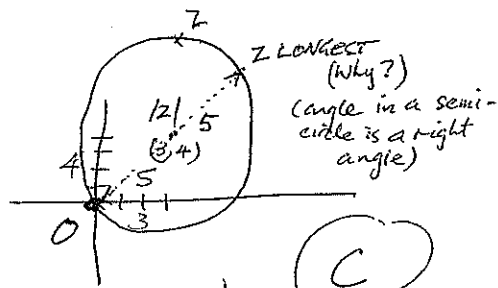 Z
Z LONGEST
(Why?)
(angle in a semi-
circle is a right
angle)
|z|
5
(3, 4)
4
5
3
O
C